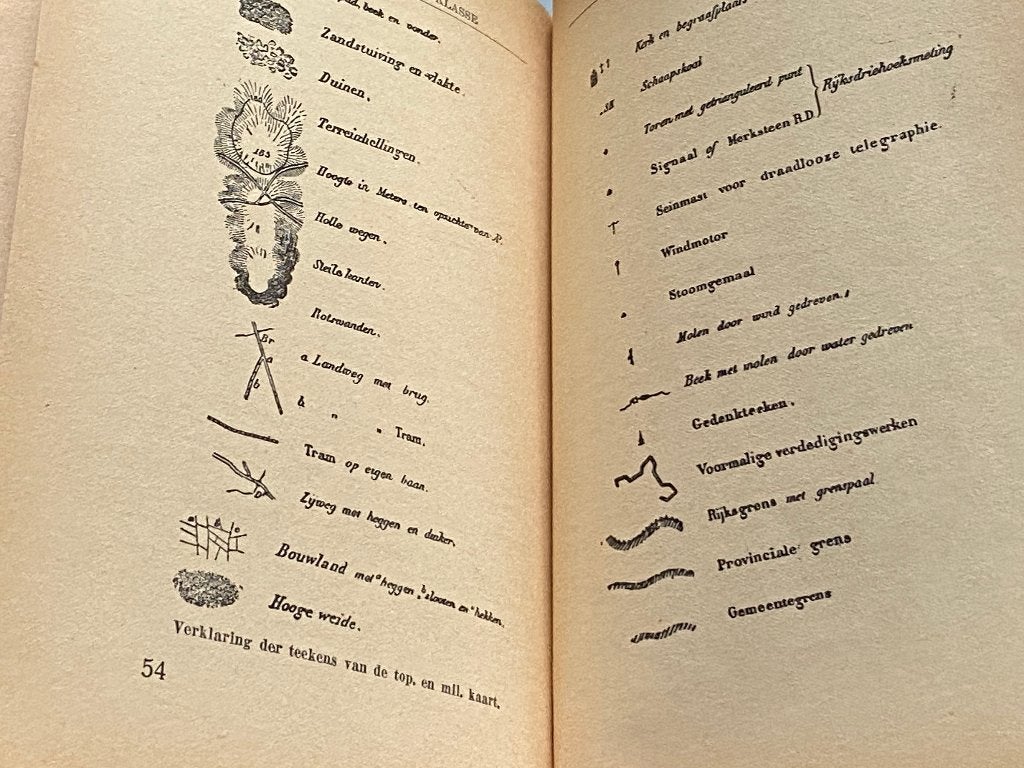 KLASSE
beek en vonder.
Zandstuiving en vlakte.
Duinen.
Terreinhellingen.
163
Hoogte in Meters ten opzichte van A.P.
Holle wegen.
Steile kanten.
Rotswanden.
Br
a
b
a Landweg met brug.
b " " Tram.
Tram op eigen baan.
Zijweg met heggen en duiker.
a b c
Bouwland met a heggen, b slooten en c hekken.
Hooge weide.
Verklaring der teekens van de top. en mil. kaart.
54
Kerk en begraafplaats
Schaapskooi
SK
Toren met getrianguleerd punt
Rijksdriehoeksmeting
Signaal of Merksteen R.D.
Seinmast voor draadlooze telegraphie.
Windmotor
Stoomgemaal
Molen door wind gedreven.
Beek met molen door water gedreven
Gedenkteeken.
Voormalige verdedigingswerken
Rijksgrens met grenspaal
Provinciale grens
Gemeentegrens